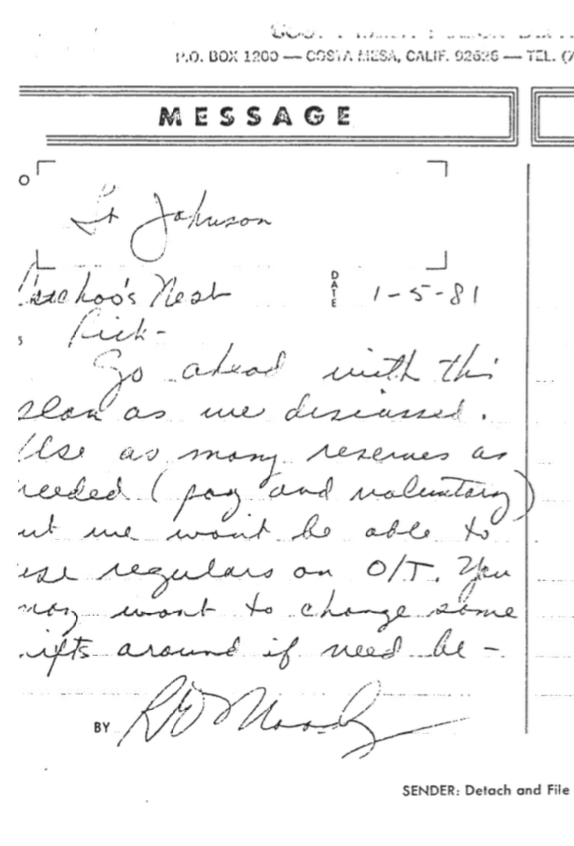 P.O. BOX 1200 — COSTA MESA, CALIF. 92626 — TEL. (7
MESSAGE
O
Lt Johnson
DATE 1-5-81
Cuckoo's Nest
S
Rick-
Go ahead with this
plan as we discussed.
Use as many reserves as
needed (pay and voluntary)
but we won't be able to
use regulars on O/T. You
may want to change some
shifts around if need be -
BY R E Moody
SENDER: Detach and File